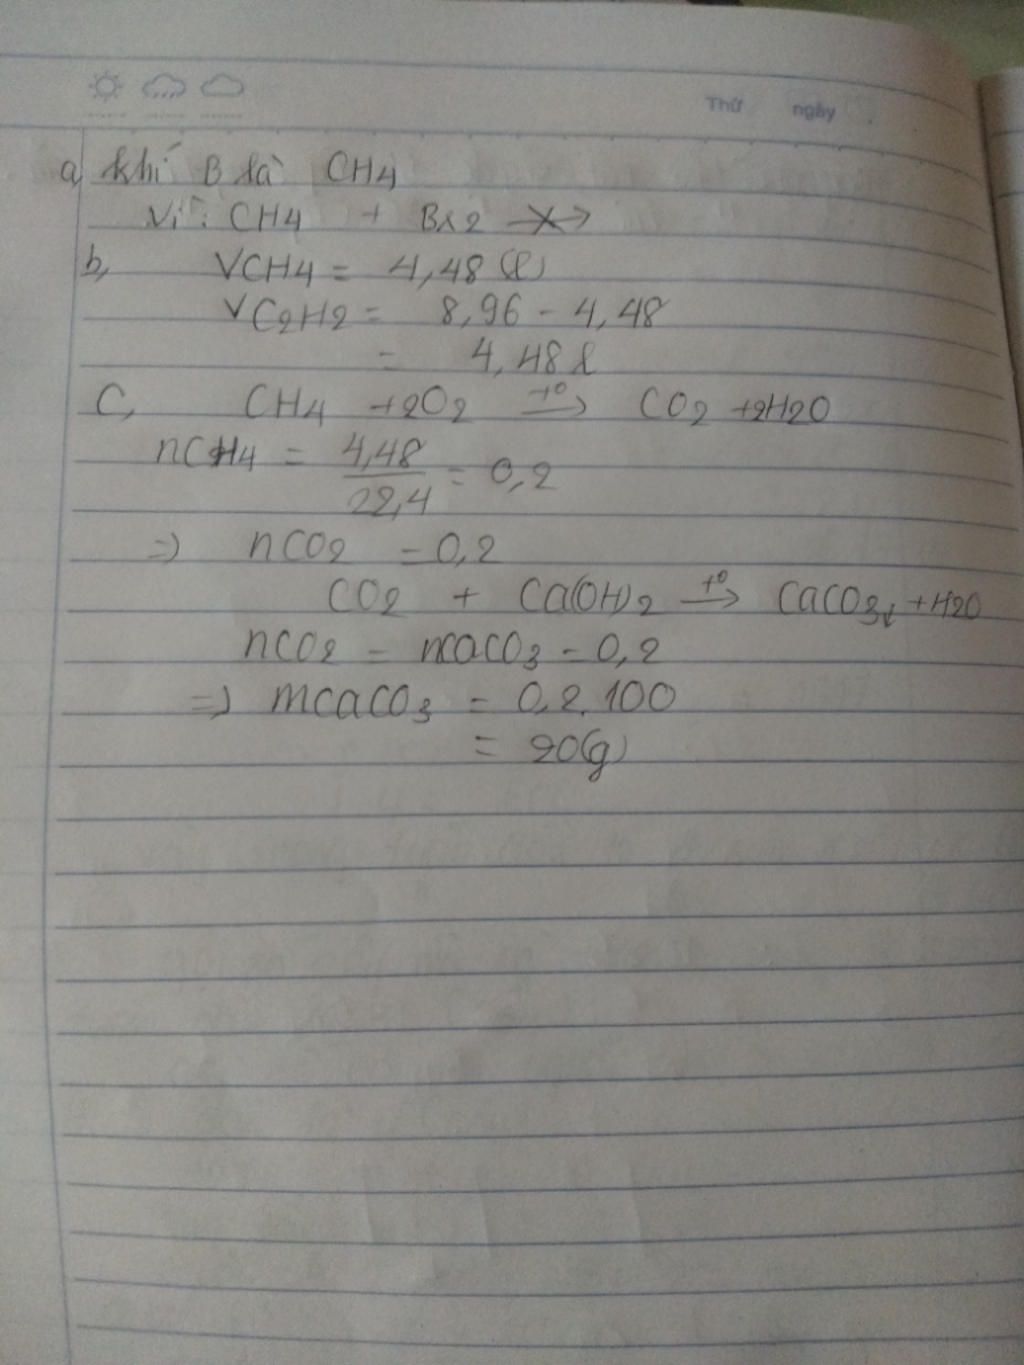 Thứ ngày
a, khí B là CH4
Vì: CH4 + Br2 -X->
b, VCH4 = 4,48 (l)
VC2H2 = 8,96 - 4,48
= 4,48 l
C, CH4 + 2O2 t°→ CO2 + 2H2O
nCH4 = 4,48/22,4 = 0,2
=> nCO2 = 0,2
CO2 + Ca(OH)2 t°→ CaCO3↓ + H2O
nCO2 = nCaCO3 = 0,2
=> mCaCO3 = 0,2.100
= 20(g)